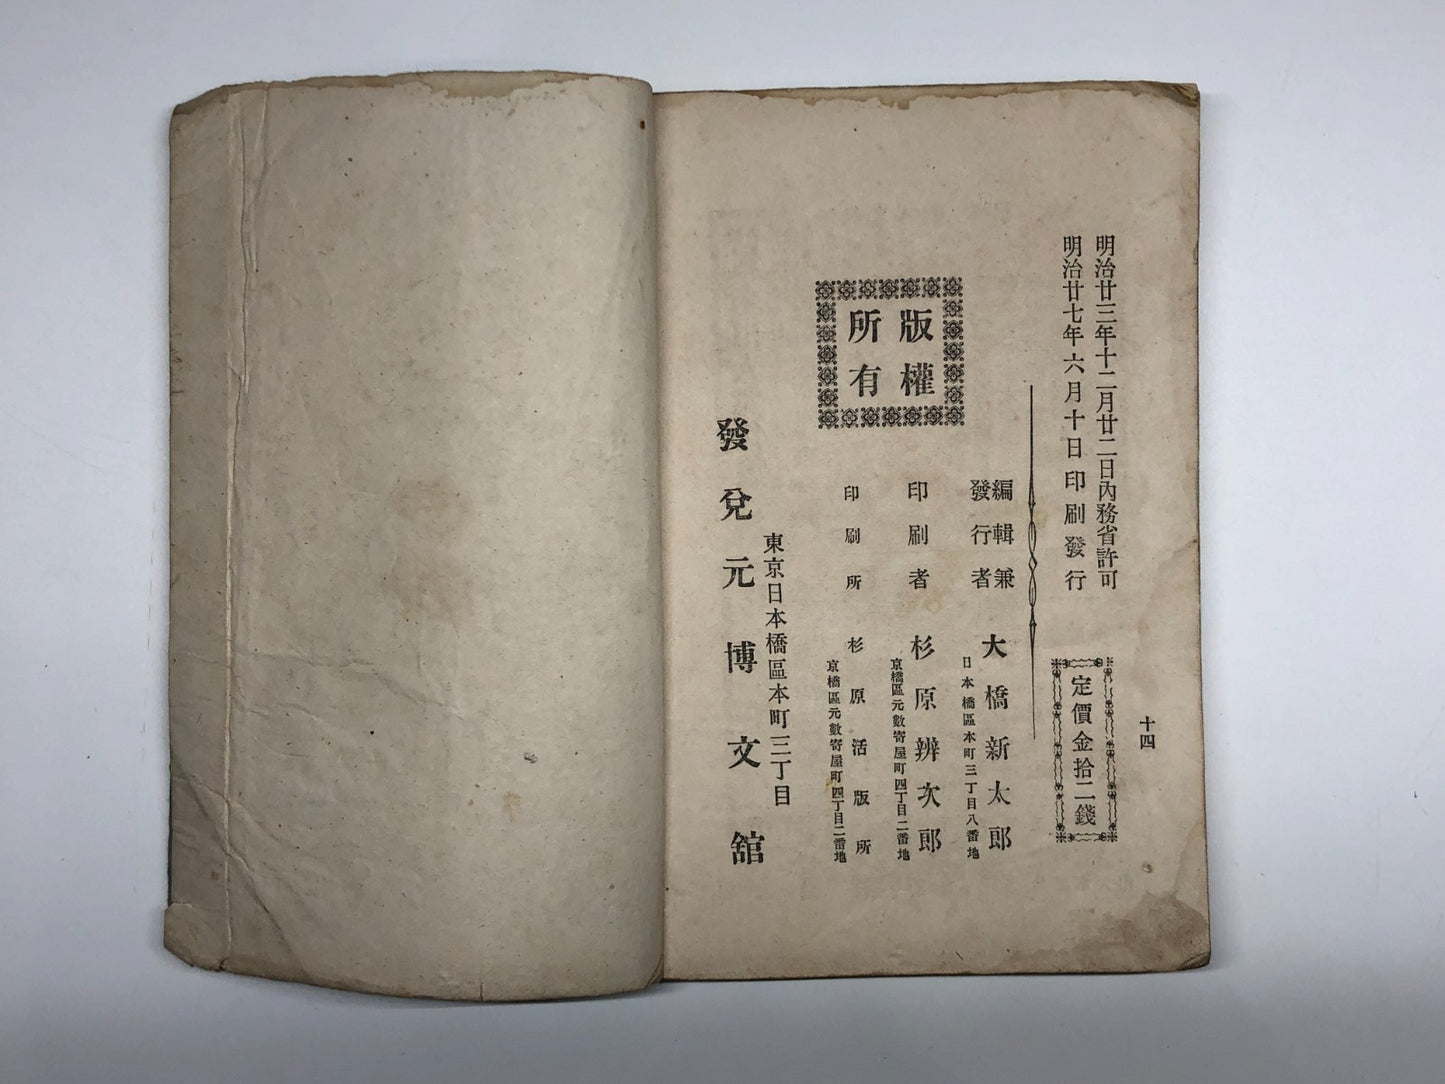 明治廿三年十二月廿二日內務省許可
明治廿七年六月十日印刷發行
十四
定價金拾二錢
版權
所有
編輯兼
發行者
大橋新太郎
日本橋區本町三丁目八番地
印刷者
杉原辨次郎
京橋區元數寄屋町四丁目二番地
印刷所
杉原活版所
京橋區元數寄屋町四丁目二番地
東京日本橋區本町三丁目
發兌元博文舘